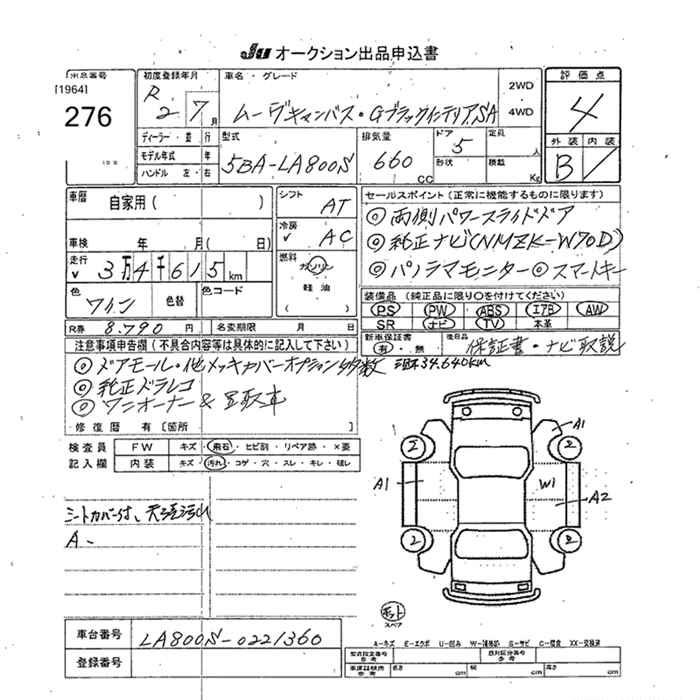 JU オークション出品申込書
出品番号 初度登録年月 車名・グレード 評価点
[1964]
276
R2 7月 ムーヴキャンバス・GブラックインテリアSA 2WD・4WD 4
ディーラー・並行 型式 排気量 ドア 定員 外装 内装
モデル年式 年 5BA-LA800S 660 CC 5 人 B
ハンドル 左・右 形状 積載 Kg
車歴 自家用( ) シフト AT セールスポイント (正常に機能するものに限ります)
◎両側パワースライドドア
車検 年 月( 日) 冷房 AC ◎純正ナビ(NMZK-W70D)
走行 3万4千615km 燃料 ガソリン ◎パノラマモニター◎スマートキー
軽油
色 ワイン 色替 色コード ( ) 装備品 (純正品に限り○を付けてください)
PS PW ABS エアB AW
R券 8.790円 名変期限 月 日 SR ナビ TV 本革
注意事項申告欄 (不具合内容等は具体的に記入して下さい) 新車保証書 有・無 後日品 保証書・ナビ取説
◎ドアモール・他メッキカバーオプション多数 34.640km
◎純正ドラレコ
◎ワンオーナー & 買取車
修復歴 有 [箇所
検査員 FW キズ・飛石・ヒビ割・リペア跡・×要
記入欄 内装 キズ・汚れ・コゲ・穴・スレ・キレ・破レ
A1 2 2
A1 W1 A2
シートカバー付、天張汚れ
A-
2 2
スペア
車台番号 LA800S-0221360
登録番号
A-キズ E-エクボ U-凹み W-補修跡 S-サビ C-腐食 XX-交換済
型式指定番号 参考 類別区分番号 参考
車庫証明用 参考 長さ cm 幅 cm 高さ cm